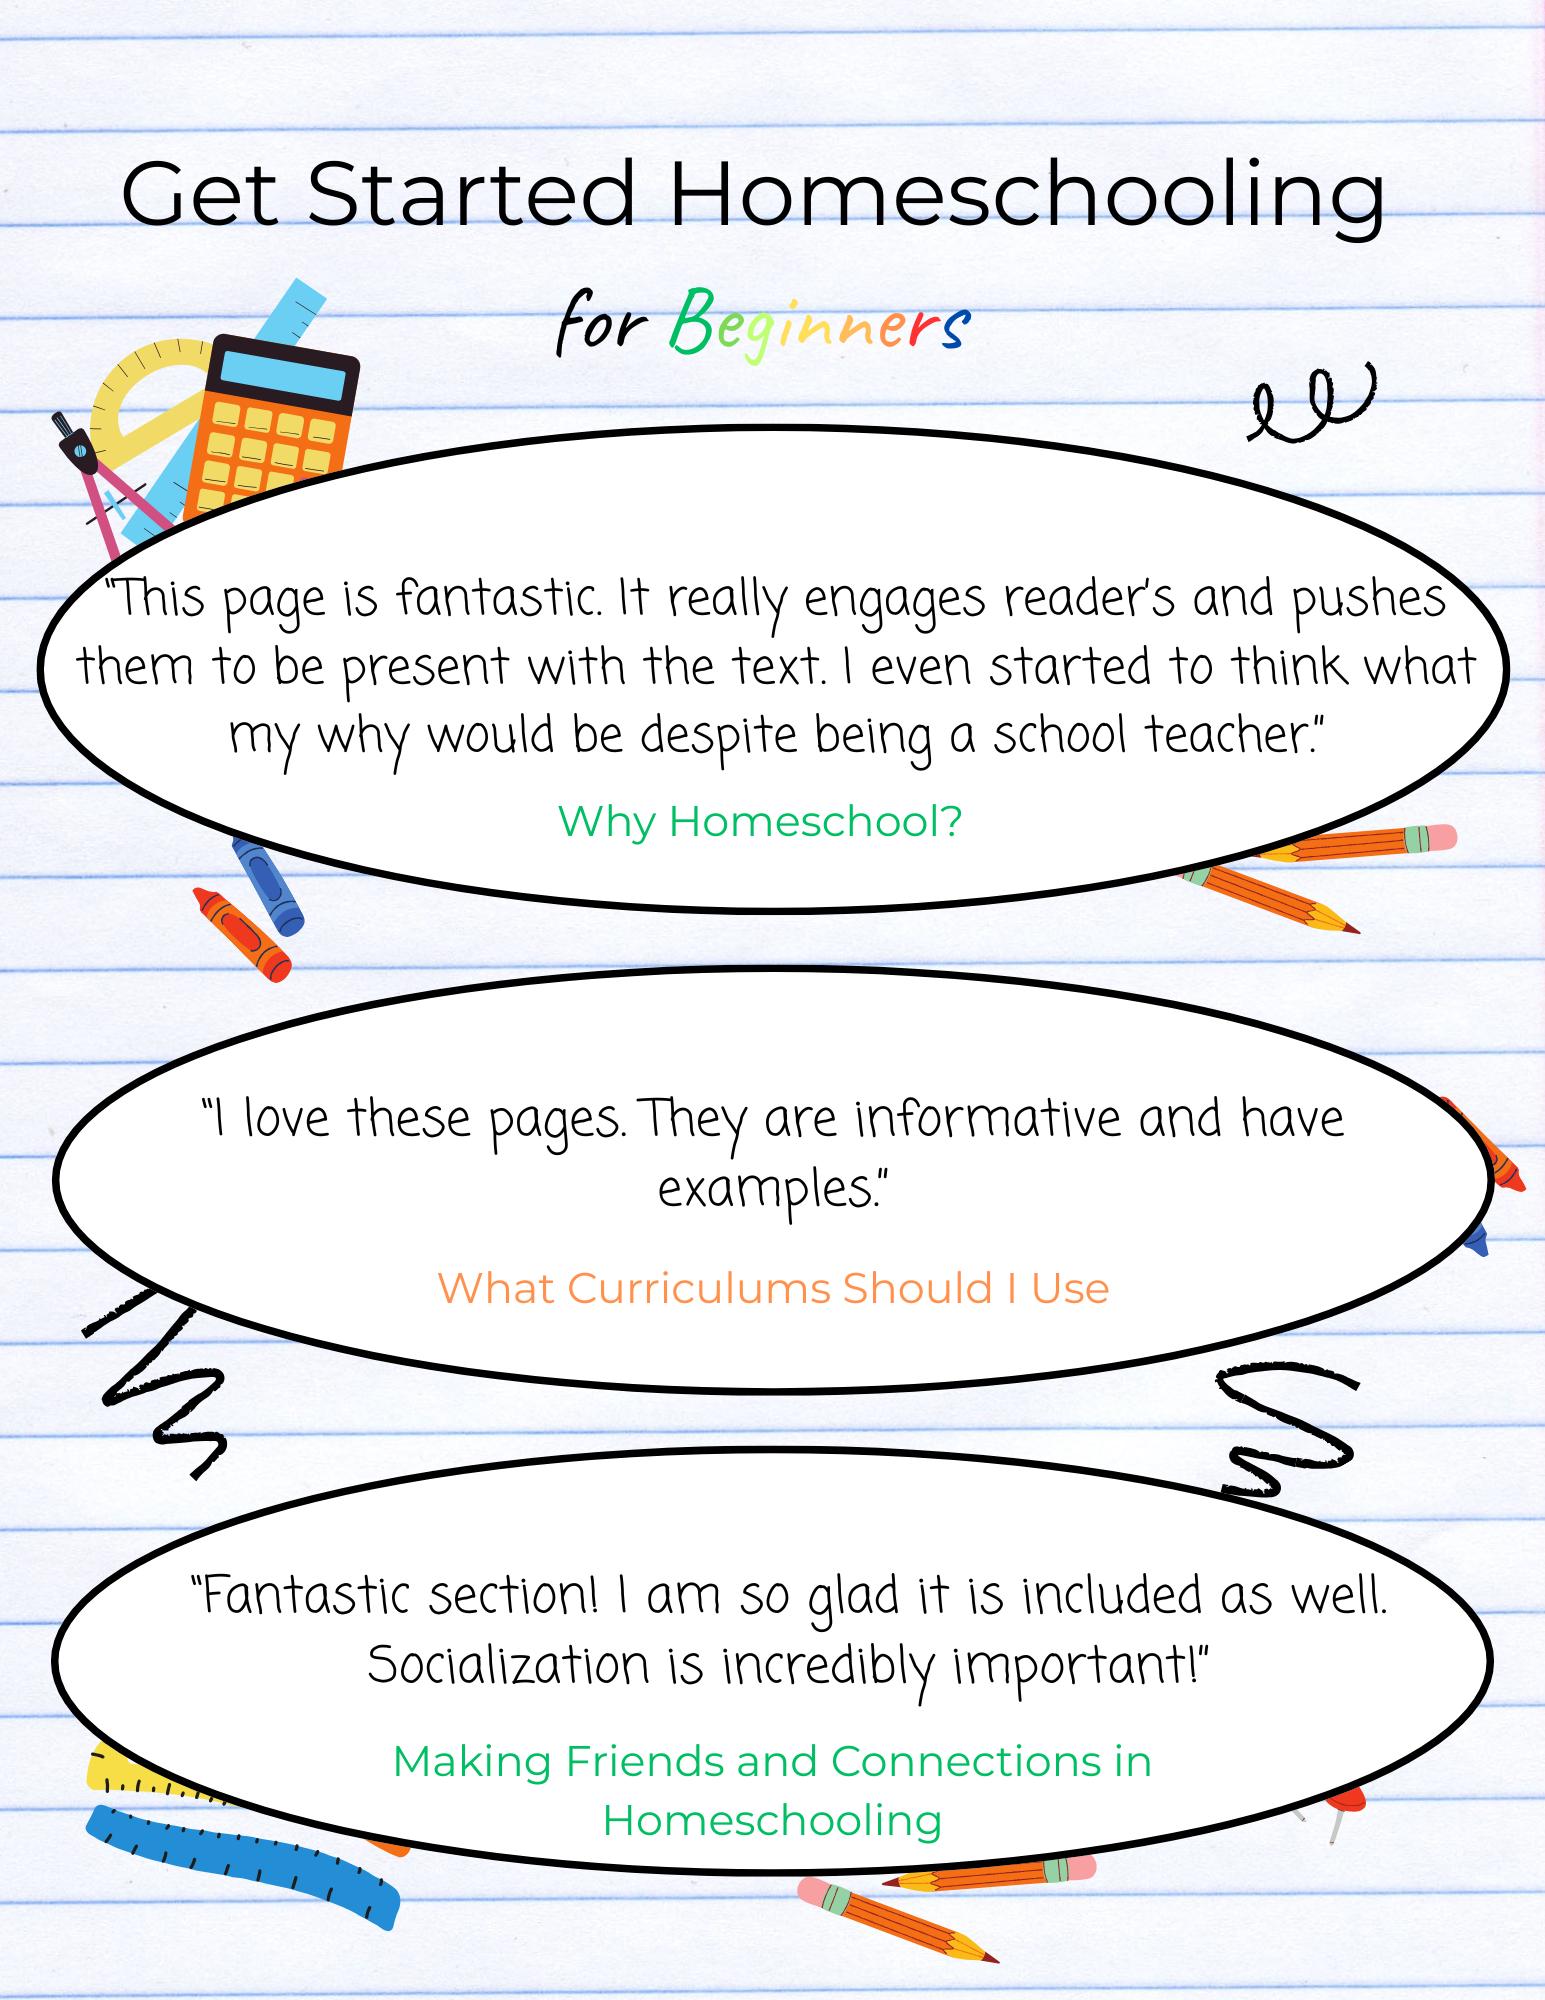 Get Started Homeschooling
for Beginners
"This page is fantastic. It really engages reader's and pushes
them to be present with the text. I even started to think what
my why would be despite being a school teacher."
Why Homeschool?
"I love these pages. They are informative and have
examples."
What Curriculums Should I Use
"Fantastic section! I am so glad it is included as well.
Socialization is incredibly important!"
Making Friends and Connections in
Homeschooling